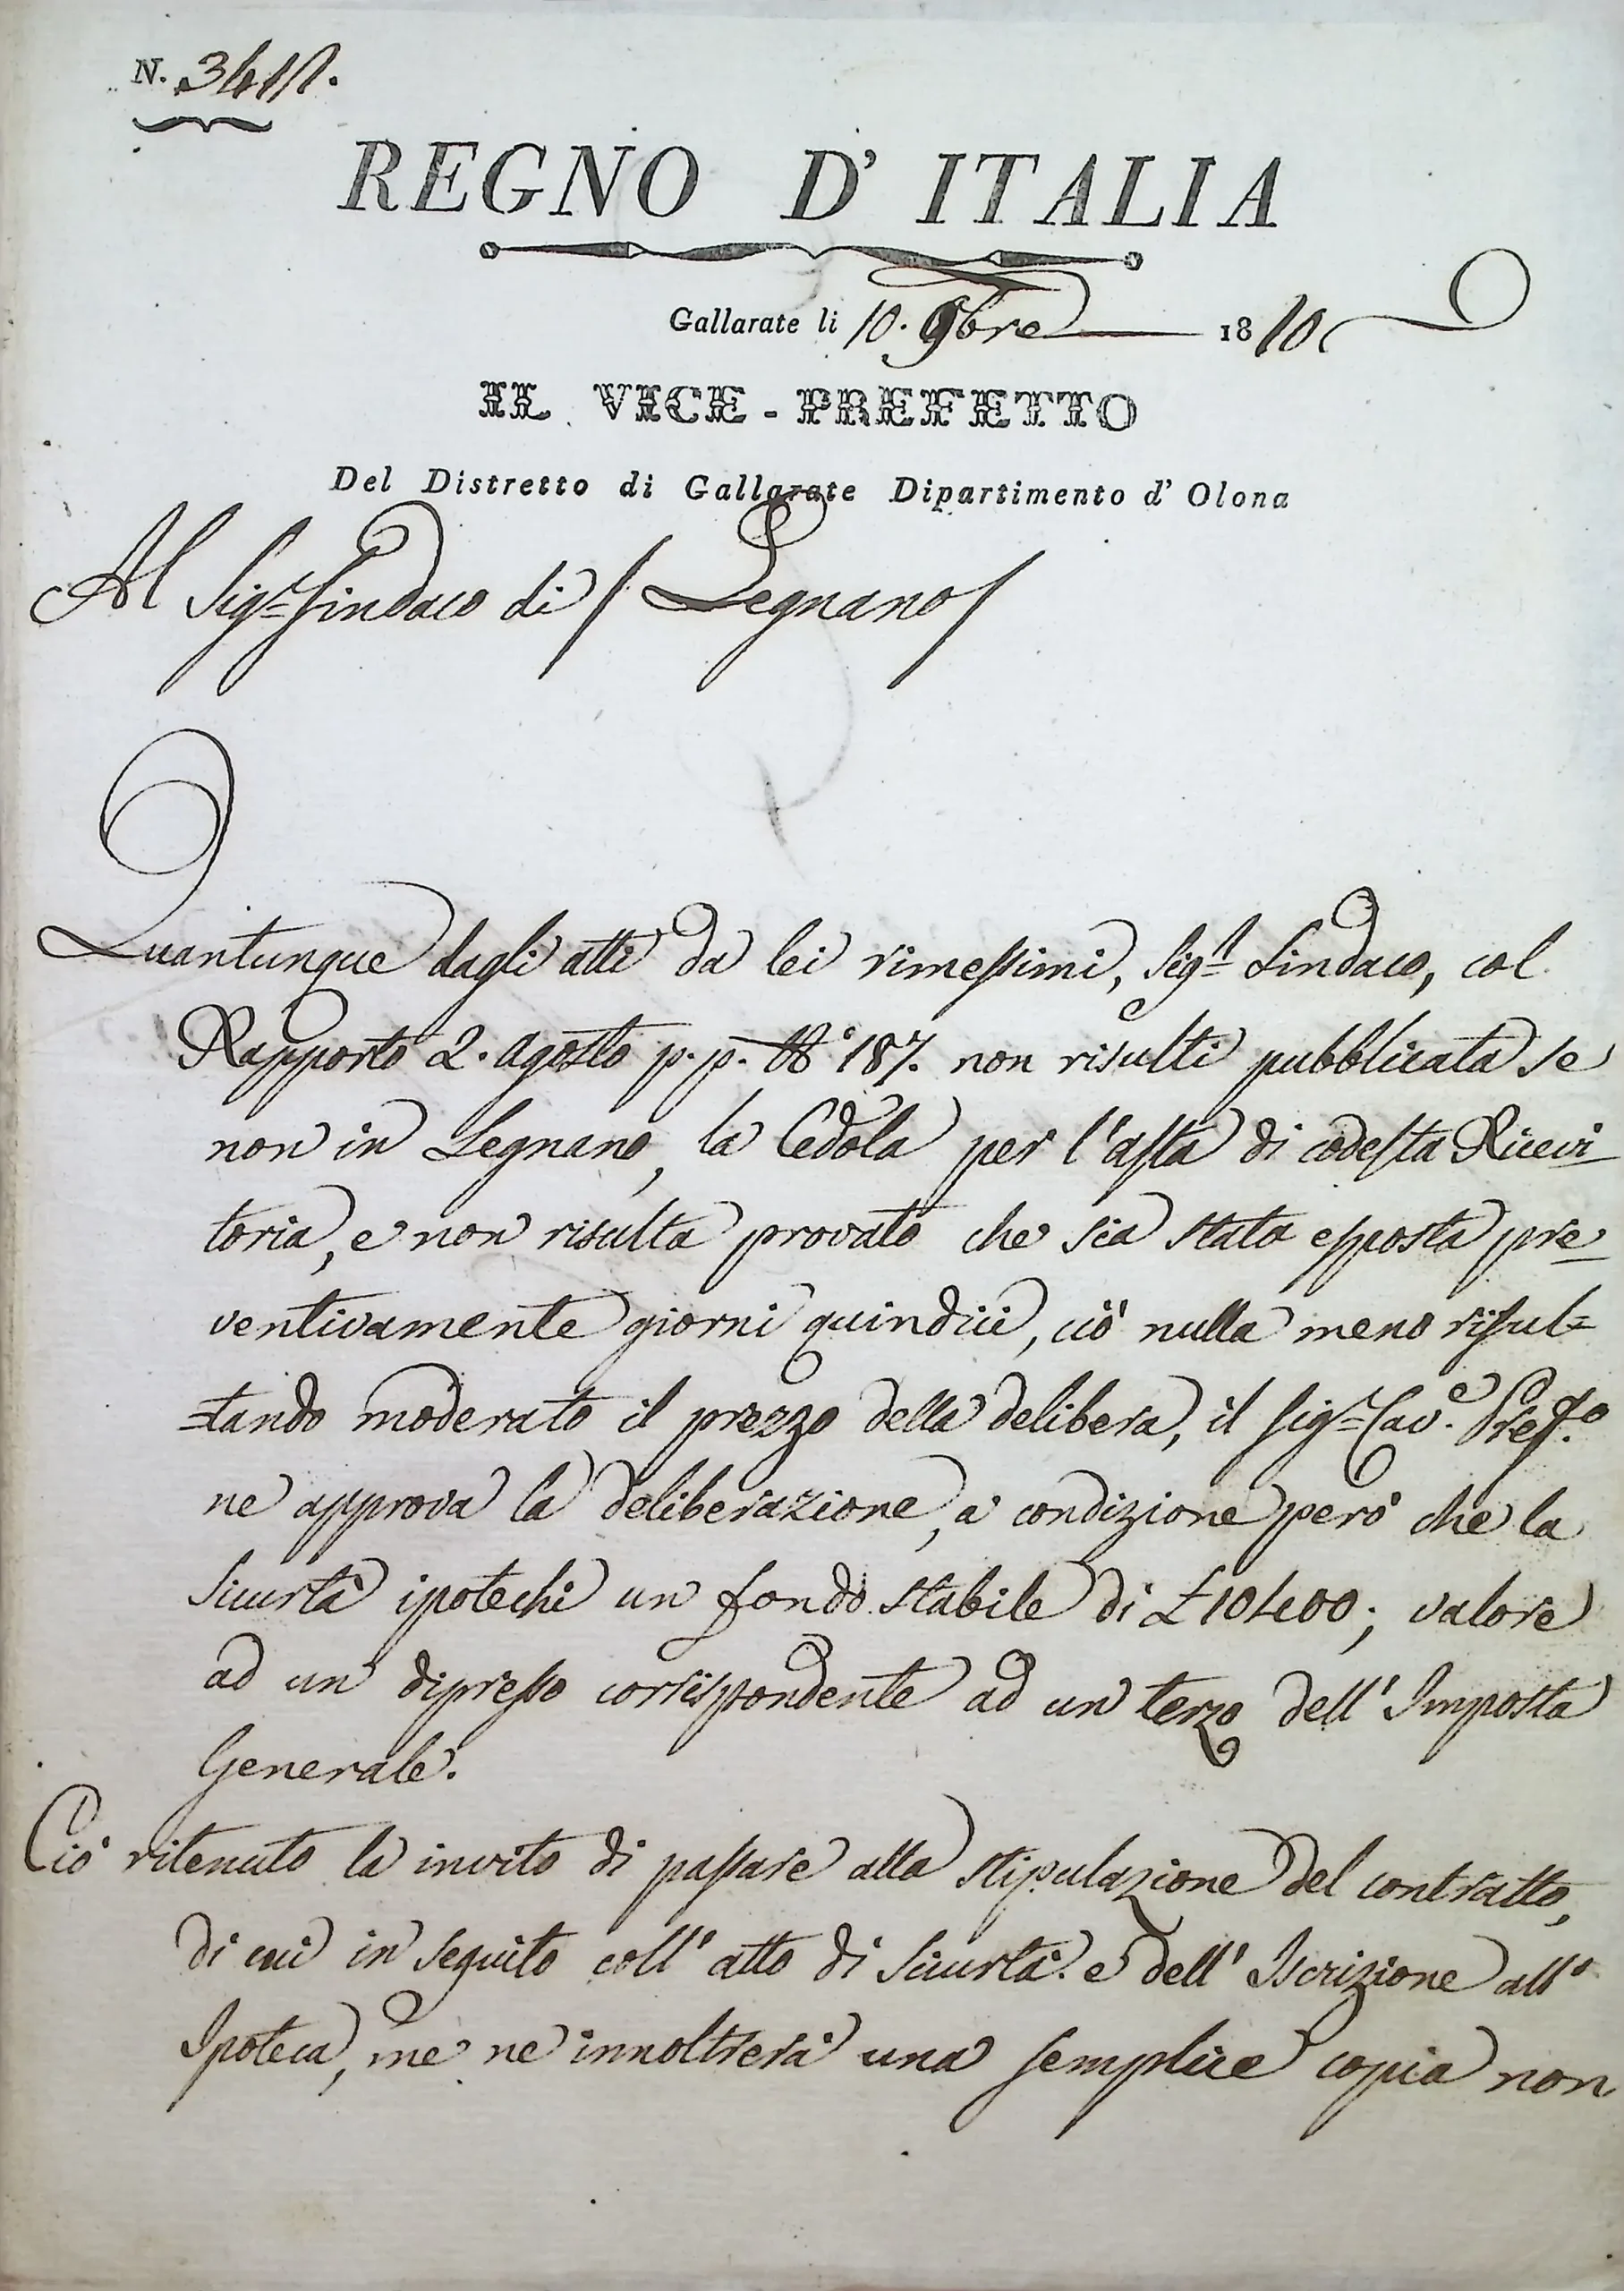 N. 3417.
REGNO D' ITALIA
Gallarate li 10. 9bre 1810
IL VICE-PREFETTO
Del Distretto di Gallarate Dipartimento d' Olona
Al Sig.r Sindaco di Legnano
Quantunque dagli atti da lei rimessimi, Sig.r Sindaco, col
Rapporto 2. Agosto p. p. N.° 187. non risulti pubblicata se
non in Legnano, la Cedola per l'asta di codesta Ricevi
toria, e non risulta provato che sia stata esposta pre
ventivamente giorni quindici, ciò nulla meno risul=
=tando moderato il prezzo della delibera, il Sig.r Cav.e Pref.o
ne approva la deliberazione, a condizione però che la
Sicurtà ipotechi un fondo stabile di £ 10400; valore
ad un dipresso corrispondente ad un terzo dell' Imposta
Generale.
Ciò ritenuto la invito di passare alla stipulazione del contratto,
di cui in seguito coll' atto di Sicurtà e dell' Iscrizione all'
Ipoteca, me ne innoltrerà una semplice copia non